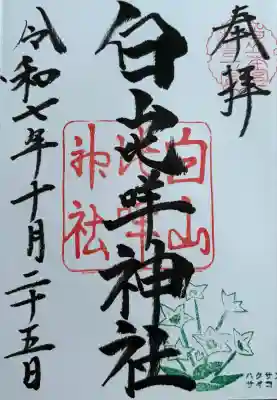 奉拝
白山比咩神社
令和七年十月二十五日
白山
比咩
神社
ハクサン
サイコ